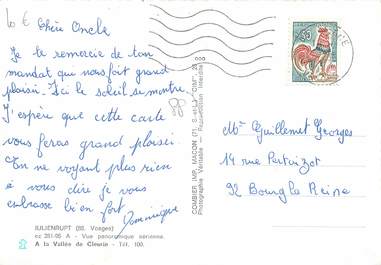 10 €
Chère Oncle
Je te remercie de ton
mandat qui nous fait grand
plaisir. Ici le soleil se montre.
J'espère que cette carte
vous feras grand plaisir.
En ne voyant plus rien
à vous dire je vous
embrasse bien fort
Dominique
88
JULIENRUPT (88. Vosges)
A - Vue panoramique aérienne.
A la Vallée de Cleurie - Tél. 100.
COMBIER IMP. MACON (71. S.-et-L.) "CIM"
Photographie Véritable - Reproduction Interdite
Mr Guillemet Georges
14 rue
92 Bourg la Reine